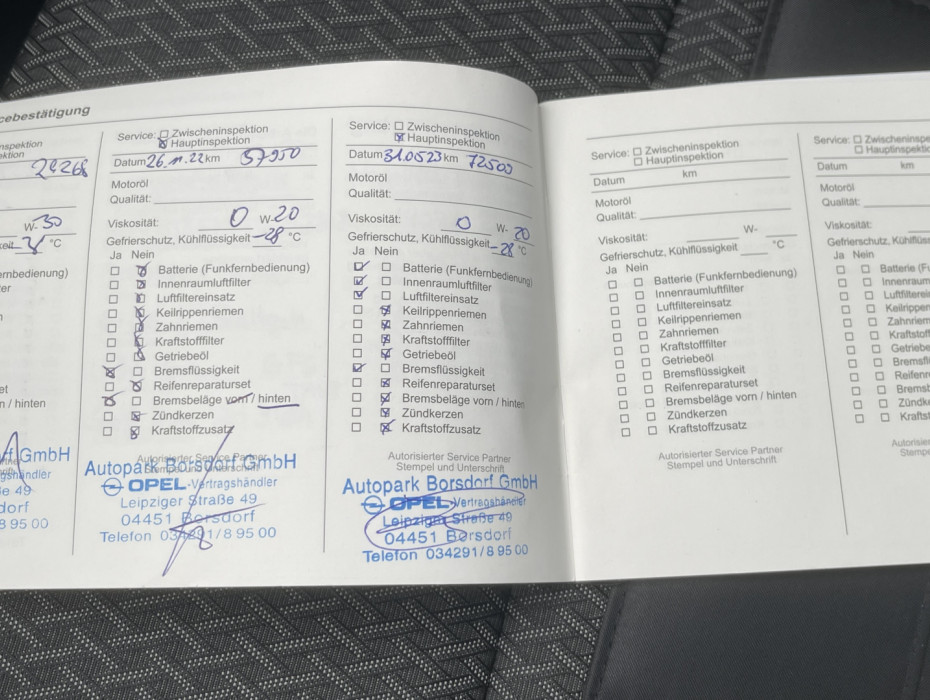 cebestätigung
nspektion
ektion
W-30
keit °C
rnbedienung)
er
n
et
n / hinten
rf GmbH
gshändler
e 49
dorf
8 95 00
Service: Zwischeninspektion
Hauptinspektion
Datum 26.11.22 km 57950
Motoröl
Qualität:
Viskosität: 0 W-20
Gefrierschutz, Kühlflüssigkeit -28 °C
Ja Nein
Batterie (Funkfernbedienung)
Innenraumluftfilter
Luftfiltereinsatz
Keilrippenriemen
Zahnriemen
Kraftstofffilter
Getriebeöl
Bremsflüssigkeit
Reifenreparaturset
Bremsbeläge vorn / hinten
Zündkerzen
Kraftstoffzusatz
Autorisierter Service Partner
Stempel und Unterschrift
Autopark Borsdorf GmbH
OPEL-Vertragshändler
Leipziger Straße 49
04451 Borsdorf
Telefon 034291/8 95 00
Service: Zwischeninspektion
Hauptinspektion
Datum 31.05.23 km 72500
Motoröl
Qualität:
Viskosität: 0 W- 20
Gefrierschutz, Kühlflüssigkeit -28 °C
Ja Nein
Batterie (Funkfernbedienung)
Innenraumluftfilter
Luftfiltereinsatz
Keilrippenriemen
Zahnriemen
Kraftstofffilter
Getriebeöl
Bremsflüssigkeit
Reifenreparaturset
Bremsbeläge vorn / hinten
Zündkerzen
Kraftstoffzusatz
Autorisierter Service Partner
Stempel und Unterschrift
Autopark Borsdorf GmbH
OPEL-Vertragshändler
Leipziger Straße 49
04451 Borsdorf
Telefon 034291/8 95 00
Service: Zwischeninspektion
Hauptinspektion
Datum km
Motoröl
Qualität:
Viskosität: W-
Gefrierschutz, Kühlflüssigkeit °C
Ja Nein
Batterie (Funkfernbedienung)
Innenraumluftfilter
Luftfiltereinsatz
Keilrippenriemen
Zahnriemen
Kraftstofffilter
Getriebeöl
Bremsflüssigkeit
Reifenreparaturset
Bremsbeläge vorn / hinten
Zündkerzen
Kraftstoffzusatz
Autorisierter Service Partner
Stempel und Unterschrift
Service: Zwischeninspe
Hauptinspektio
Datum km
Motoröl
Qualität:
Viskosität:
Gefrierschutz, Kühlflüss
Ja Nein
Batterie (F
Innenraum
Luftfilterein
Keilrippen
Zahnriem
Kraftstoff
Getriebe
Bremsflü
Reifenre
Bremsb
Zündk
Krafts
Autorisier
Stempel